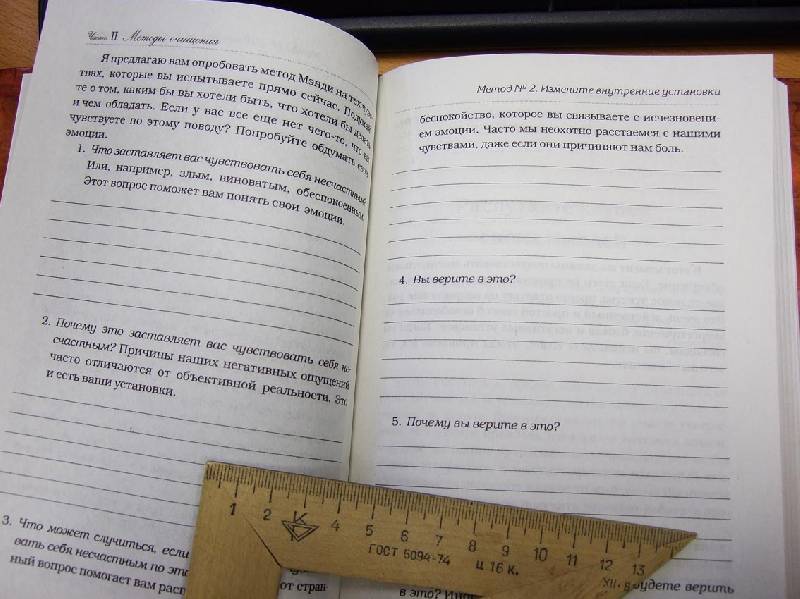 Часть II Методы очищения
Я предлагаю вам опробовать метод Мэнди на
тиях, которые вы испытываете прямо сейчас. Подумай
те о том, каким бы вы хотели быть, что хотели бы делать
и чем обладать. Если у вас все еще нет чего-то, что вы
чувствуете по этому поводу? Попробуйте обдумать свои
эмоции.
1. Что заставляет вас чувствовать себя несчастным?
Или, например, злым, виноватым, обеспокоенным.
Этот вопрос поможет вам понять свои эмоции.
2. Почему это заставляет вас чувствовать себя не-
счастным? Причины наших негативных ощущений
часто отличаются от объективной реальности. Это
и есть ваши установки.
3. Что может случиться, если
вать себя несчастным по это
ный вопрос помогает вам расп
от стран-
Метод № 2. Измените внутренние установки
беспокойство, которое вы связываете с исчезновени-
ем эмоции. Часто мы неохотно расстаемся с нашими
чувствами, даже если они причиняют нам боль.
4. Вы верите в это?
5. Почему вы верите в это?
будете верить
в это?
1 2 4 5 6 7 8 9 10 11 12 13
К
ГОСТ 5094-74 ц 16 к.